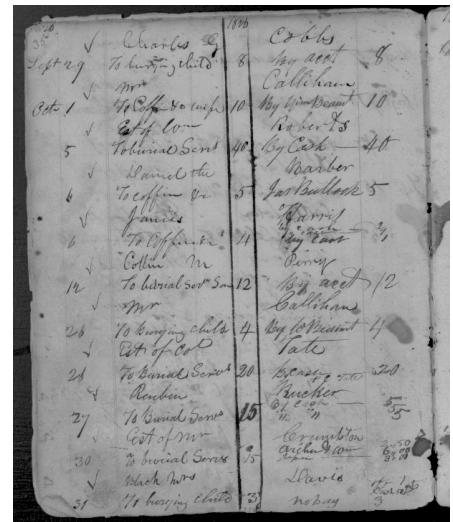 1826
Charles G Cobbs
Sept 29 To burying child 8 By acct 8
Mr Callihan
Octr 1 To Coffin &c wife 10 By 10
Est of Wm Roberts
5 To burial Servs 40 By Cash 40
Daniel the Barber
6 To coffin &c 5 Jas Bullock 5
James Harris
6 To Coffin &c 4 By Cash
Collin M Perry
14 To burial Servs Son 12 By acct 12
Mr Callihan
26 To Burying child 4 By 4
Est of Col Tate
24 To Burial Servs 20 By cash 20
Reubin Rucker
27 To Burial Servs 15 By cash
Est of Mr Crumpton
30 To burial Servs 15
Black Mrs Davis
31 To burying child 3 no pay 3